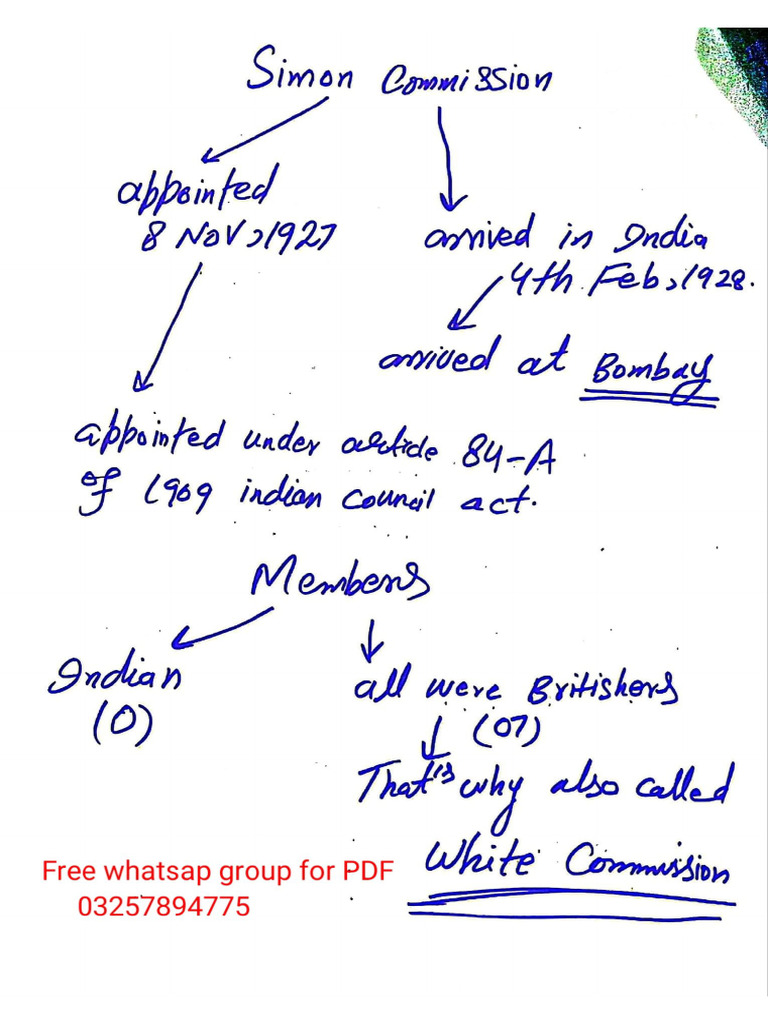 Simon Commission
appointed
8 Nov, 1927
arrived in India
4th Feb, 1928.
arrived at Bombay
appointed under article 84-A
of 1909 indian council act.
Members
Indian
(0)
all were Britishers
(07)
That's why also called
White Commission
Free whatsap group for PDF
03257894775